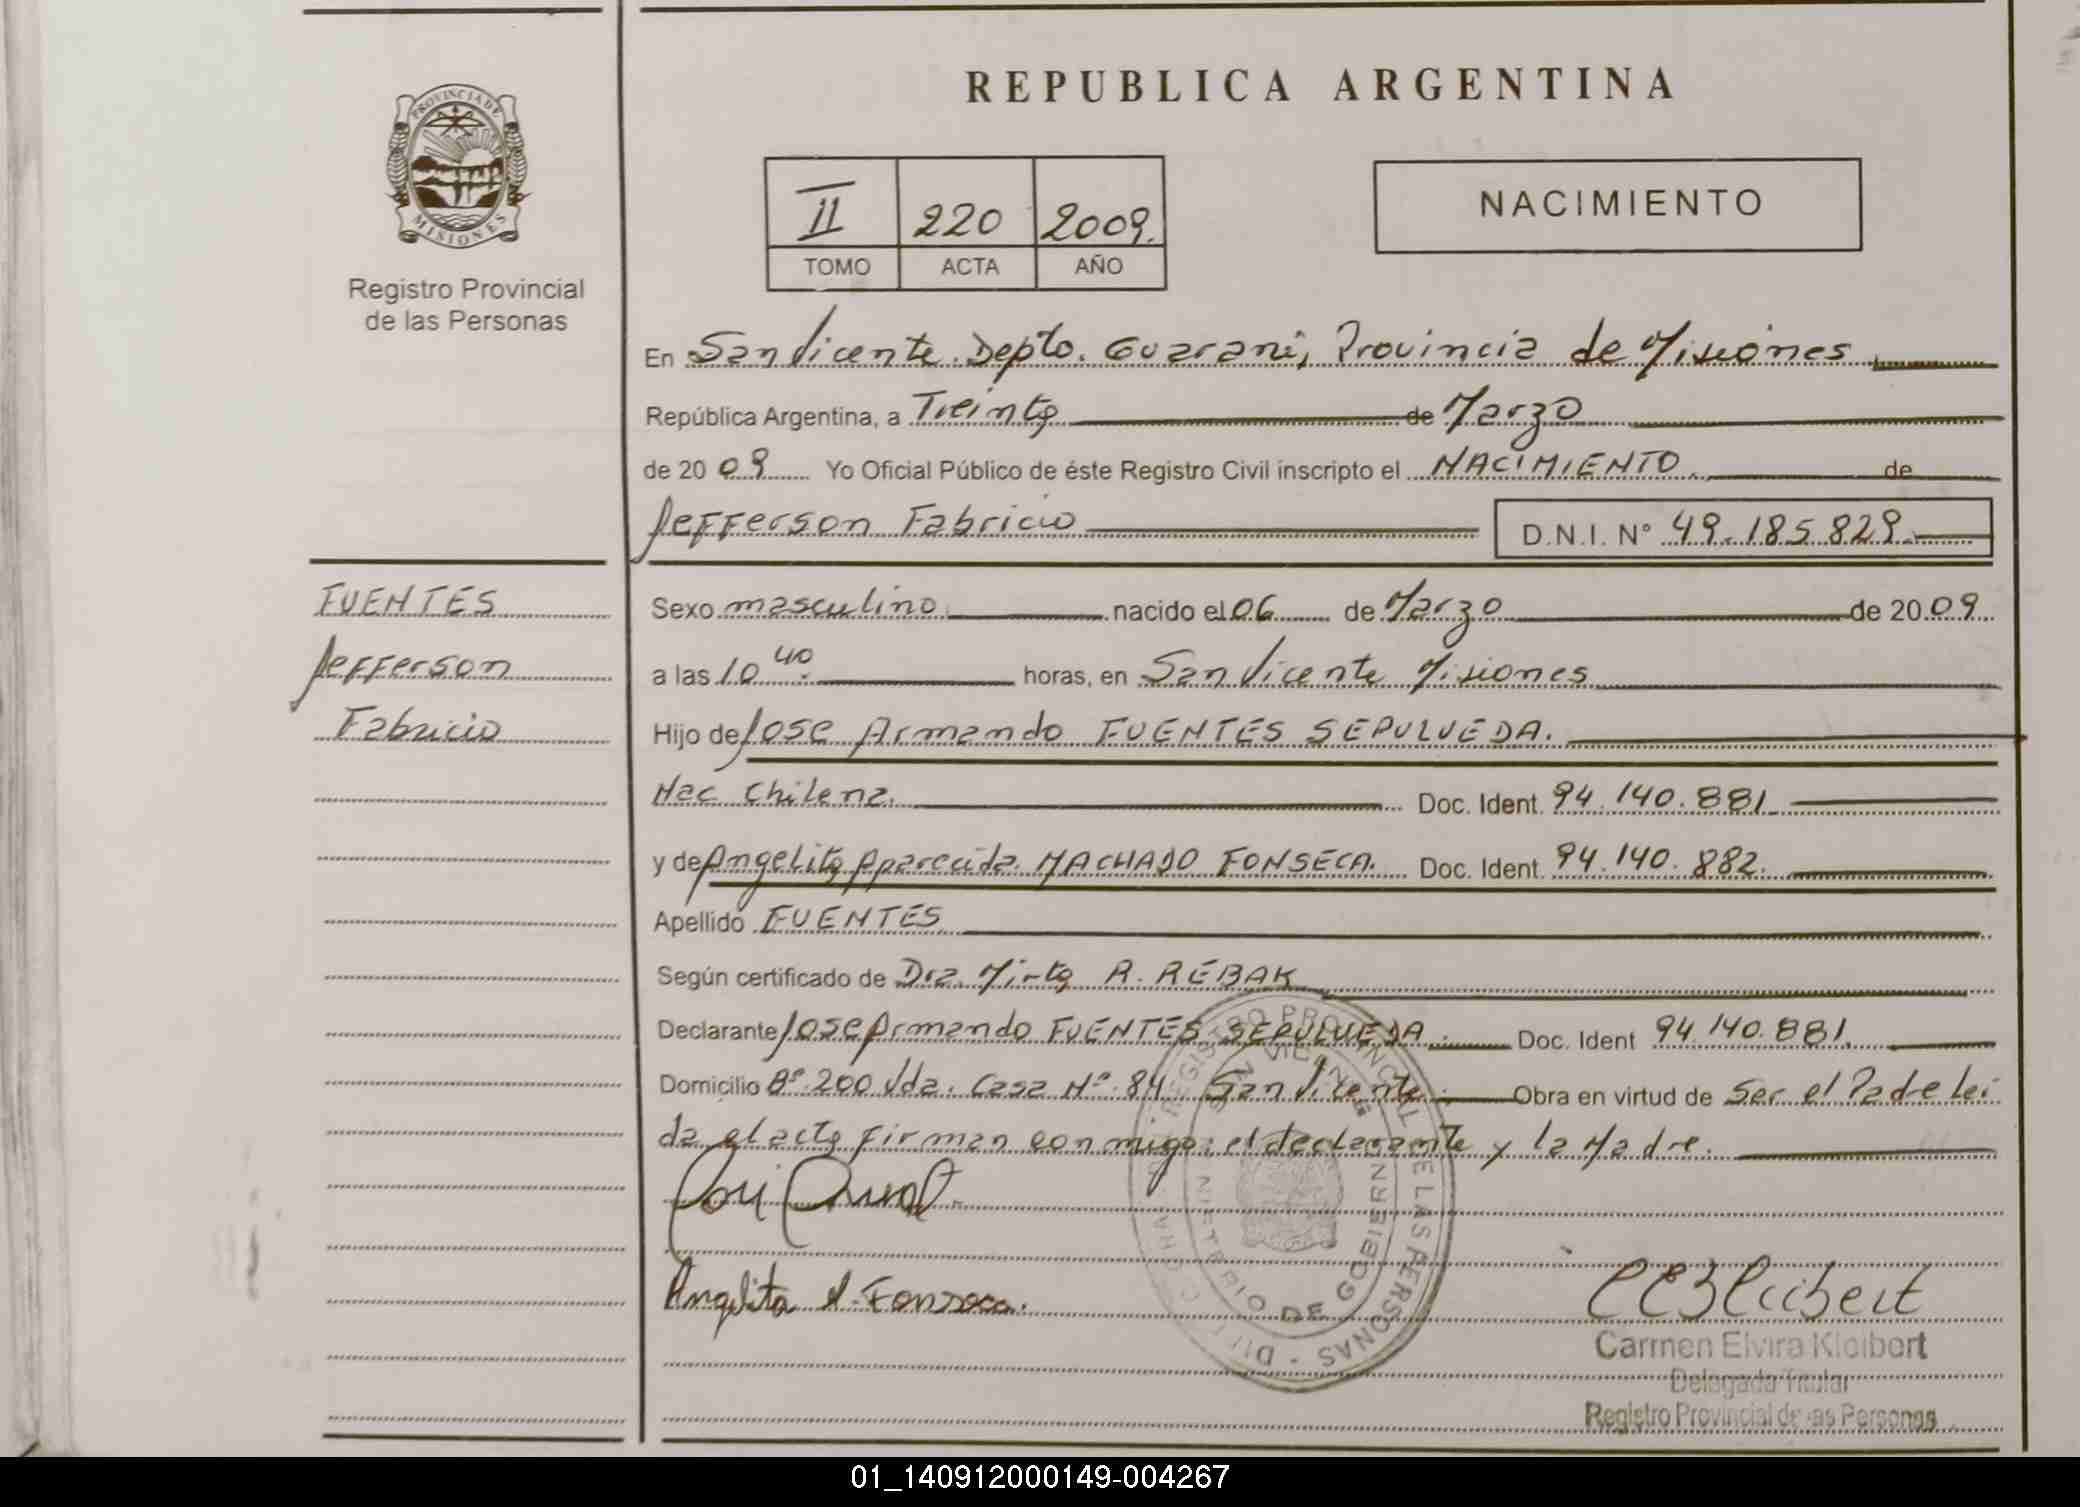 REPUBLICA ARGENTINA
PROVINCIA DE
MISIONES
Registro Provincial
de las Personas
II 220 2009.
TOMO ACTA AÑO
NACIMIENTO
En San Vicente Depto. Guarani, Provincia de Misiones
República Argentina, a Treinta de Marzo
de 20 09 Yo Oficial Público de éste Registro Civil inscripto el NACIMIENTO de
Jefferson Fabricio D.N.I. Nº 49.185.829
FUENTES
Jefferson
Fabricio
Sexo masculino nacido el 06 de Marzo de 20 09
a las 10 40 horas, en San Vicente Misiones
Hijo de Jose Armando FUENTES SEPULVEDA.
Nac Chilena. Doc. Ident. 94.140.881
y de Angelita Aparecida MACHADO FONSECA. Doc. Ident. 94.140.882.
Apellido FUENTES
Según certificado de Dra. Mirta R. REBAK
Declarante Jose Armando FUENTES SEPULVEDA. Doc. Ident 94.140.881.
Domicilio Bº 200 Vda. Casa Nº 84 San Vicente Obra en virtud de Ser el Padre Lei
da el acta firman conmigo: el declarante y la Madre.
REGISTRO PROVINCIAL DE LAS PERSONAS
SAN VICENTE
MINISTERIO DE GOBIERNO
Angelita A. Fonseca.
Carmen Elvira Kloibert
Delegada Titular
Registro Provincial de las Personas
01_140912000149-004267